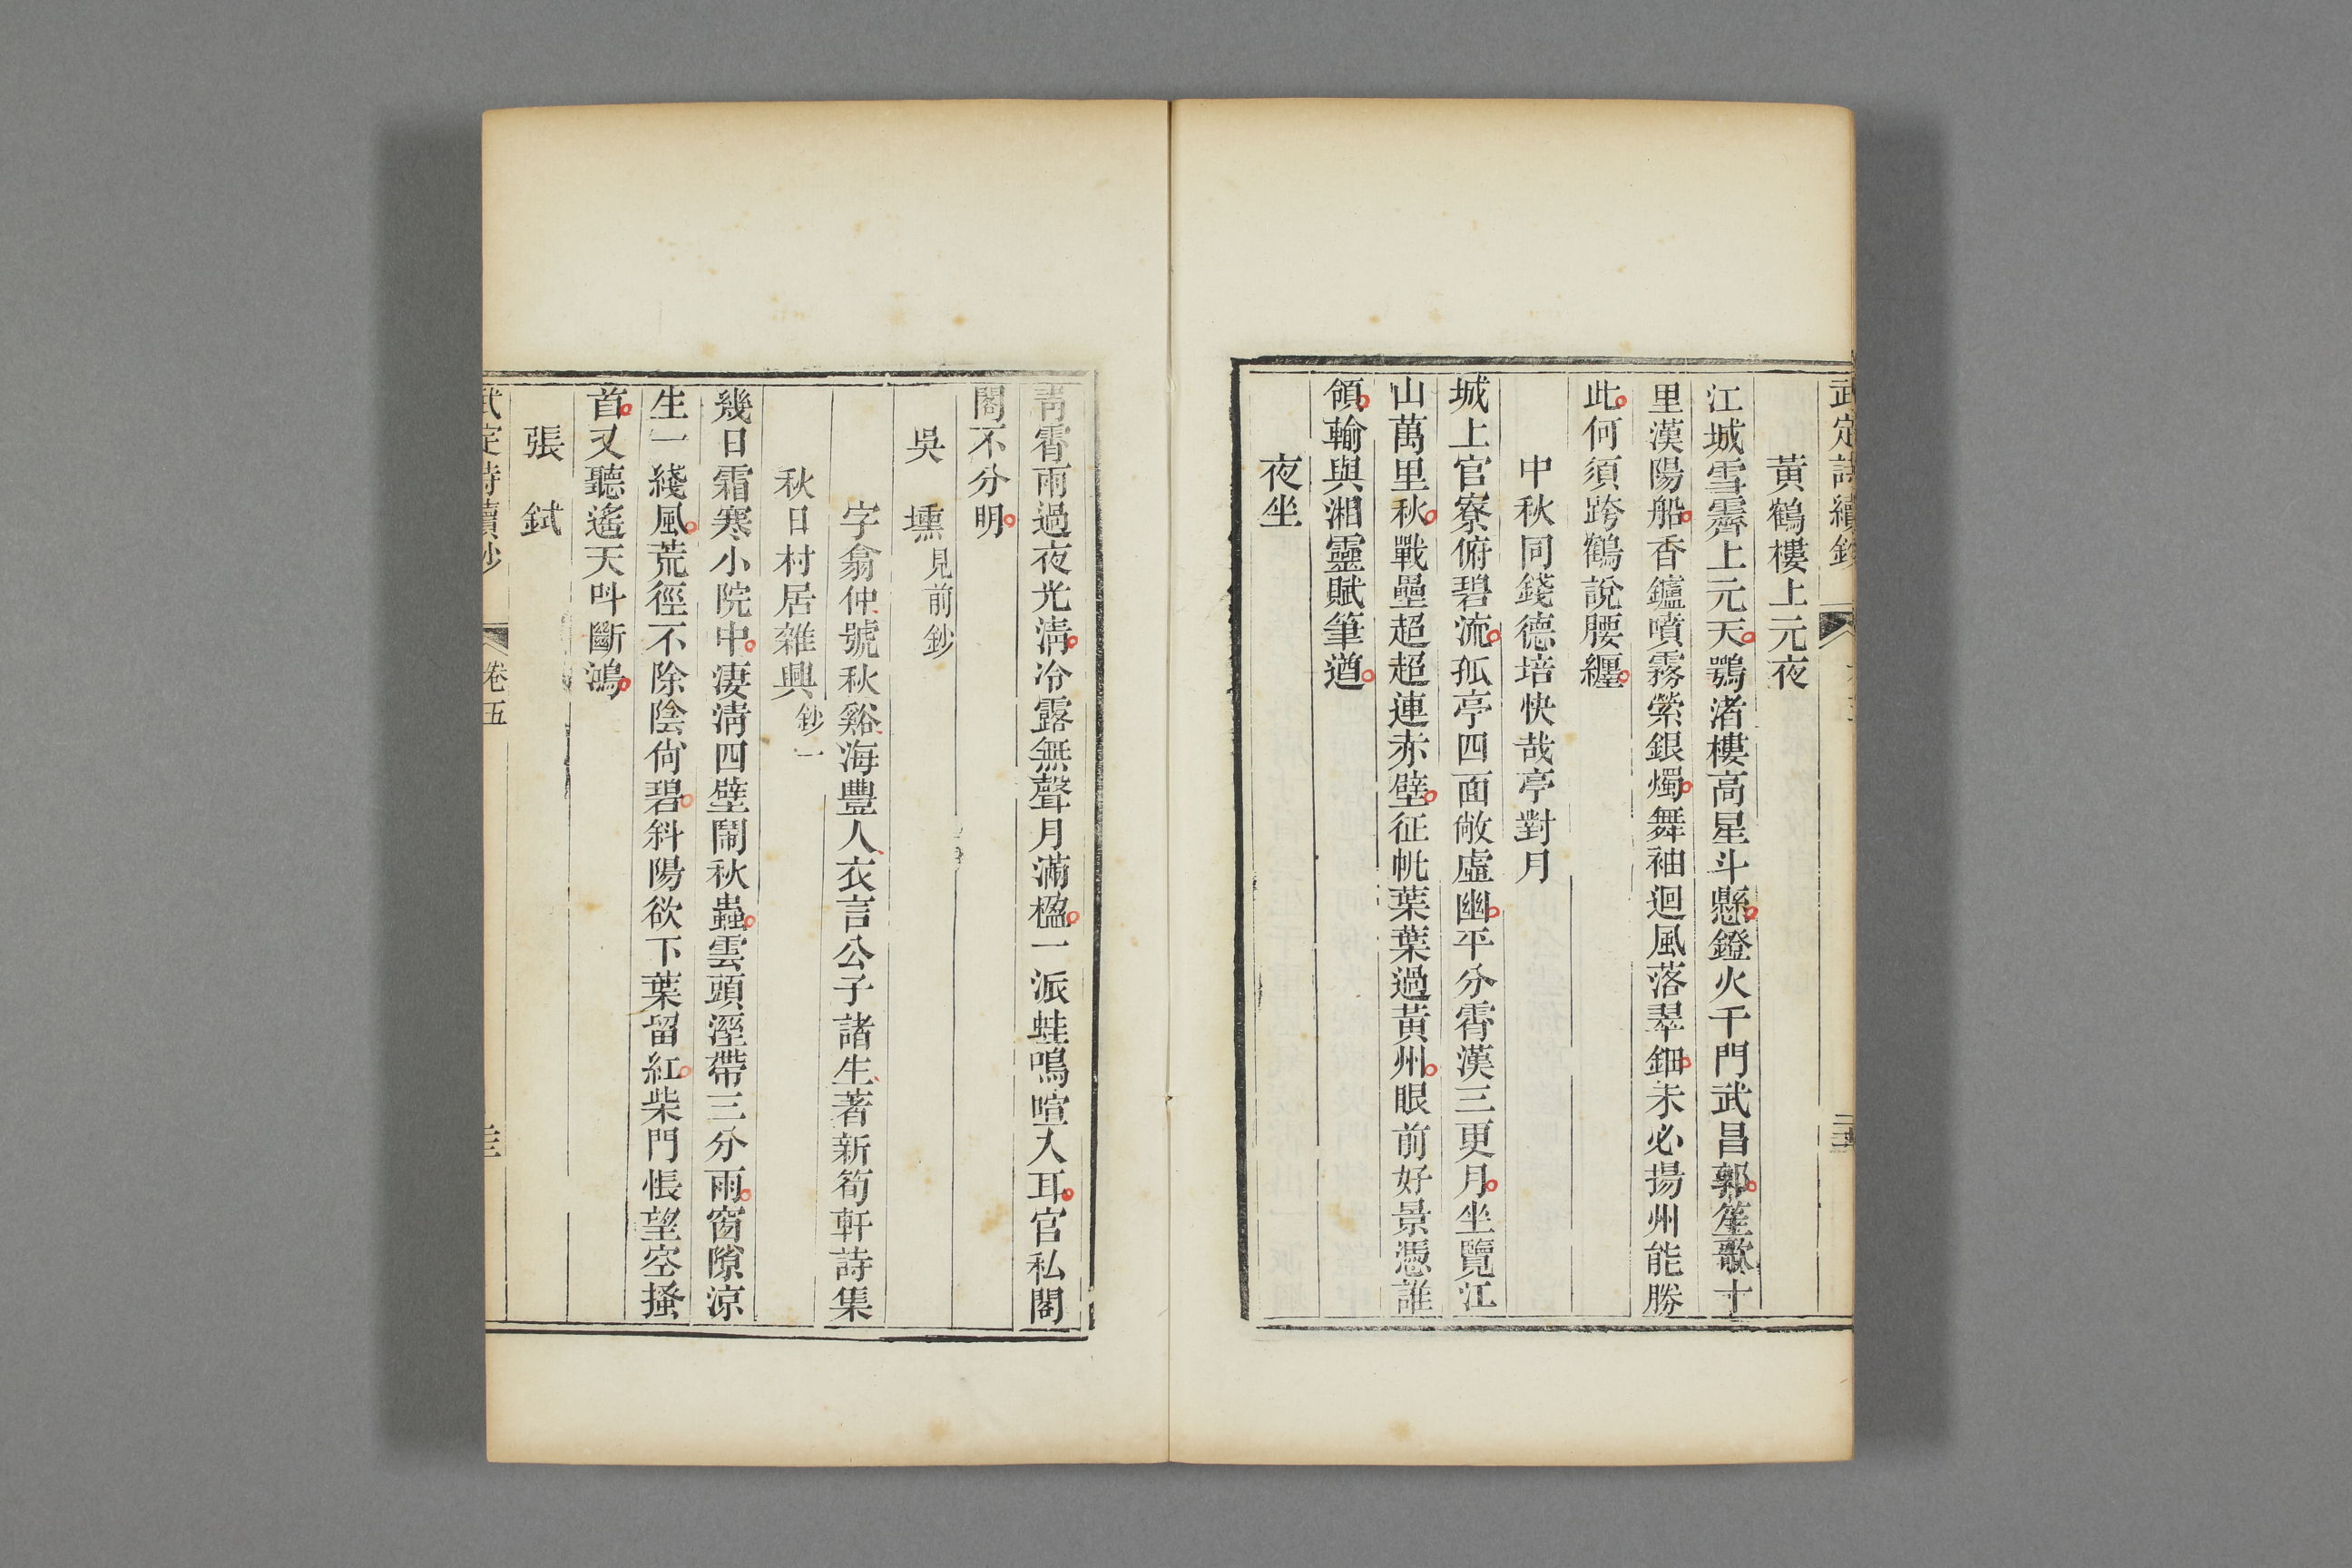 武定詩續鈔
黃鶴樓上元夜
江城雪霽上元天鶚渚樓高星斗懸鐙火千門武昌郭笙歌十
里漢陽船香鑪噴霧縈銀燭舞袖迴風落翠鈿未必揚州能勝
此何須跨鶴說腰纏
中秋同錢德培快哉亭對月
城上官寮俯碧流孤亭四面敞虛幽平分霄漢三更月坐覽江
山萬里秋戰壘超超連赤壁征帆葉葉過黃州眼前好景憑誰
領輸與湘靈賦筆遒
夜坐
靑霄雨過夜光淸冷露無聲月滿楹一派蛙鳴喧人耳官私閣
閣不分明
吳壎見前鈔
字翕仲號秋谿海豐人衣言公子諸生著新筍軒詩集
秋日村居雜興鈔一
幾日霜寒小院中淒淸四壁鬧秋蟲雲頭溼帶三分雨窗隙涼
生一綫風荒徑不除陰尙碧斜陽欲下葉留紅柴門悵望空搔
首又聽遙天呌斷鴻
張鉽
武定詩續鈔 卷五